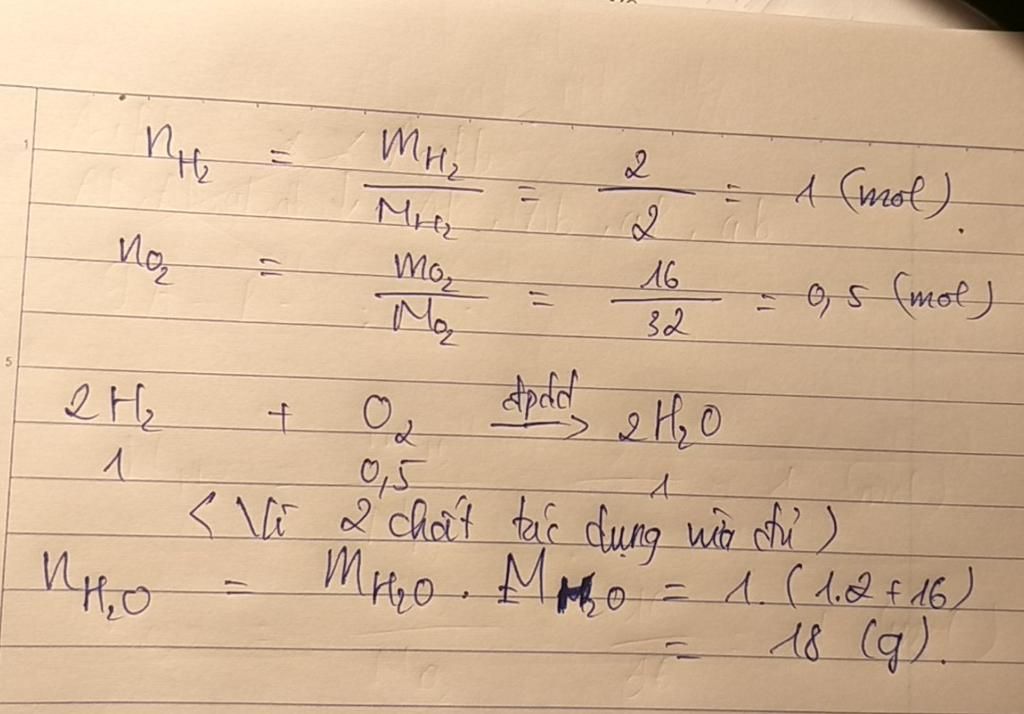 n_H₂ = m_H₂ / M_H₂ = 2 / 2 = 1 (mol).
n_O₂ = m_O₂ / M_O₂ = 16 / 32 = 0,5 (mol)
5
2H₂ + O₂ —đpdd→ 2H₂O
1 0,5 1
(Vì 2 chất tác dụng vừa đủ)
n_H₂O = m_H₂O . M_H₂O = 1. (1.2 + 16)
= 18 (g).